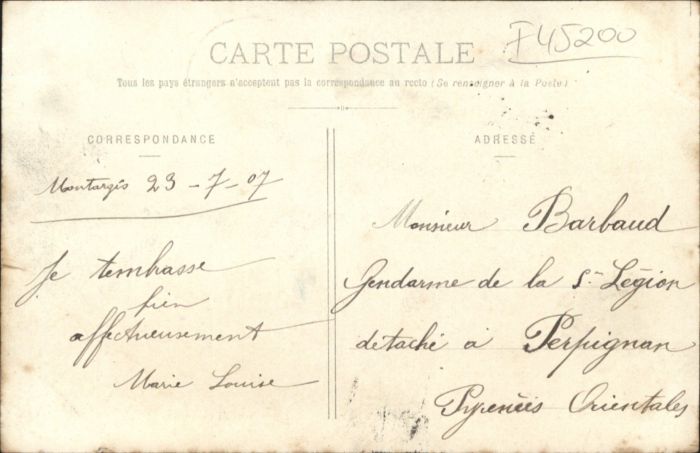 F45200
CARTE POSTALE
Tous les pays étrangers n'acceptent pas la correspondance au recto (Se renseigner à la Poste)
CORRESPONDANCE
ADRESSE
Montargis 23-7-07
Je tembrasse
bien
affectueusement
Marie Louise
Monsieur Barbaud
Gendarme de la 5e Légion
detaché à Perpignan
Pyrenées Orientales